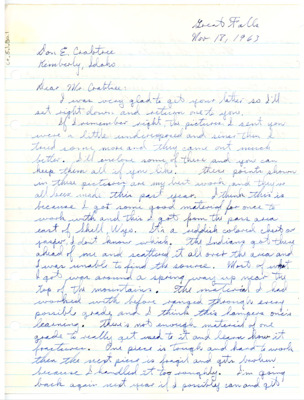 Great Falls
Nov 18, 1963
Don E. Crabtree
Kimberly, Idaho
Dear Mr. Crabtree:
I was very glad to get your letter so I'll
set right down and return one to you.
If I remember right the pictures I sent you
were a little underexposed and since then I
tried some more and they came out much
better. I'll enclose some of these and you can
keep them all if you like. These points shown
in these pictures are my best work and they've
all been made this past year. I think this is
because I got some good material for once to
work with and this I got from the pass area
east of Shell, Wyo. It's a reddish colored chert or
jasper, I don't know which. The Indians got there
ahead of me and scattered it all over the area and
I was unable to find the source. Most of what
I got was around a spring way up near the
top of the mountains. The material I had
worked with before ranged through every
possible grade and I think this hampers one's
learning. There's not enough material of one
grade to really get used to it and learn how it
fractures. One piece is tough and hard to work
then the next piece is fragil and gets broken
because I handled it too roughly. I'm going
back again next year if possible and get